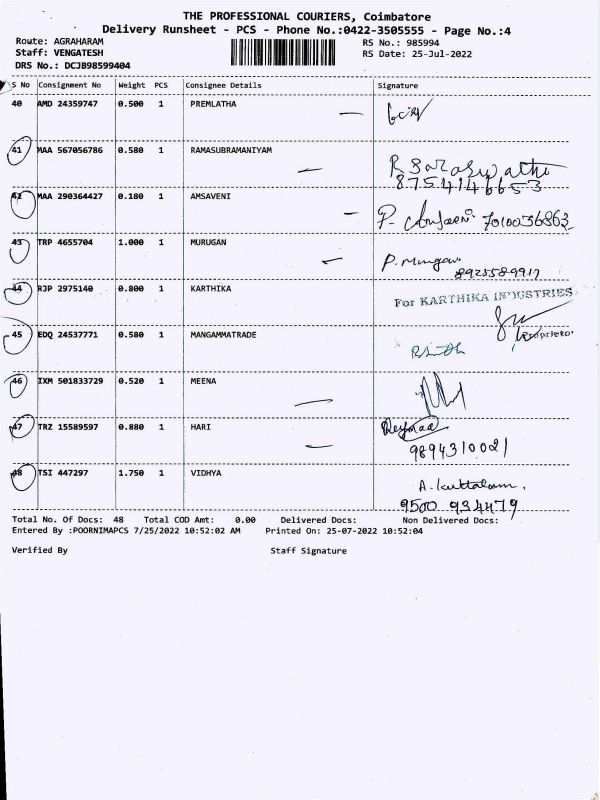 THE PROFESSIONAL COURIERS, Coimbatore
Delivery Runsheet - PCS - Phone No.:0422-3505555 - Page No.:4
Route: AGRAHARAM RS No.: 985994
Staff: VENGATESH RS Date: 25-Jul-2022
DRS No.: DCJB98599404
S No Consignment No Weight PCS Consignee Details Signature
40 AMD 24359747 0.500 1 PREMLATHA
41 MAA 567056786 0.580 1 RAMASUBRAMANIYAM
R Saraswathi
8754146653
42 MAA 290364427 0.180 1 AMSAVENI
P. 7010056863
43 TRP 4655704 1.000 1 MURUGAN
P. Murugan
8925589917
44 RJP 2975140 0.800 1 KARTHIKA
For KARTHIKA INDUSTRIES
Proprietor
45 EDQ 24537771 0.580 1 MANGAMMATRADE
46 IXM 501833729 0.520 1 MEENA
47 TRZ 15589597 0.880 1 HARI
9894310021
48 TSI 447297 1.750 1 VIDHYA
A. kuttalam.
9500 934479
Total No. Of Docs: 48 Total COD Amt: 0.00 Delivered Docs: Non Delivered Docs:
Entered By :POORNIMAPCS 7/25/2022 10:52:02 AM Printed On: 25-07-2022 10:52:04
Verified By Staff Signature